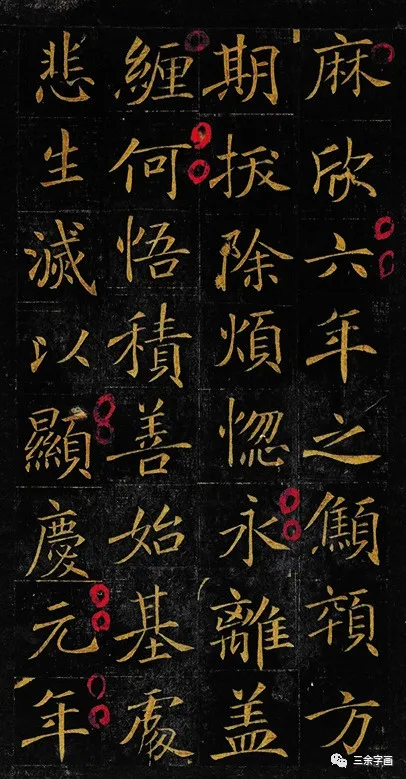 麻欣六年之顦顇方
期拔除煩惱永離盖
纏何悟積善始基處
悲生滅以顯慶元年
三余字画